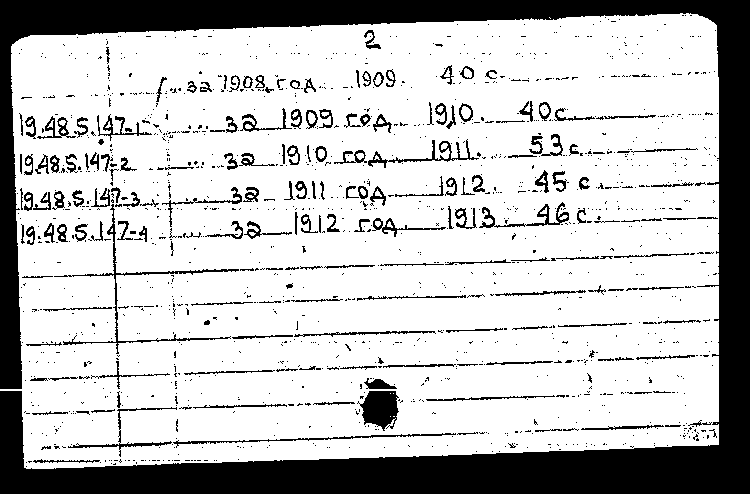 2
... за 1908 год 1909. 40 с.
19.48.5.147-1 ... за 1909 год 1910. 40 с.
19.48.5.147-2 ... за 1910 год 1911. 53 с.
19.48.5.147-3 ... за 1911 год 1912. 45 с.
19.48.5.147-4 ... за 1912 год. 1913. 46 с.